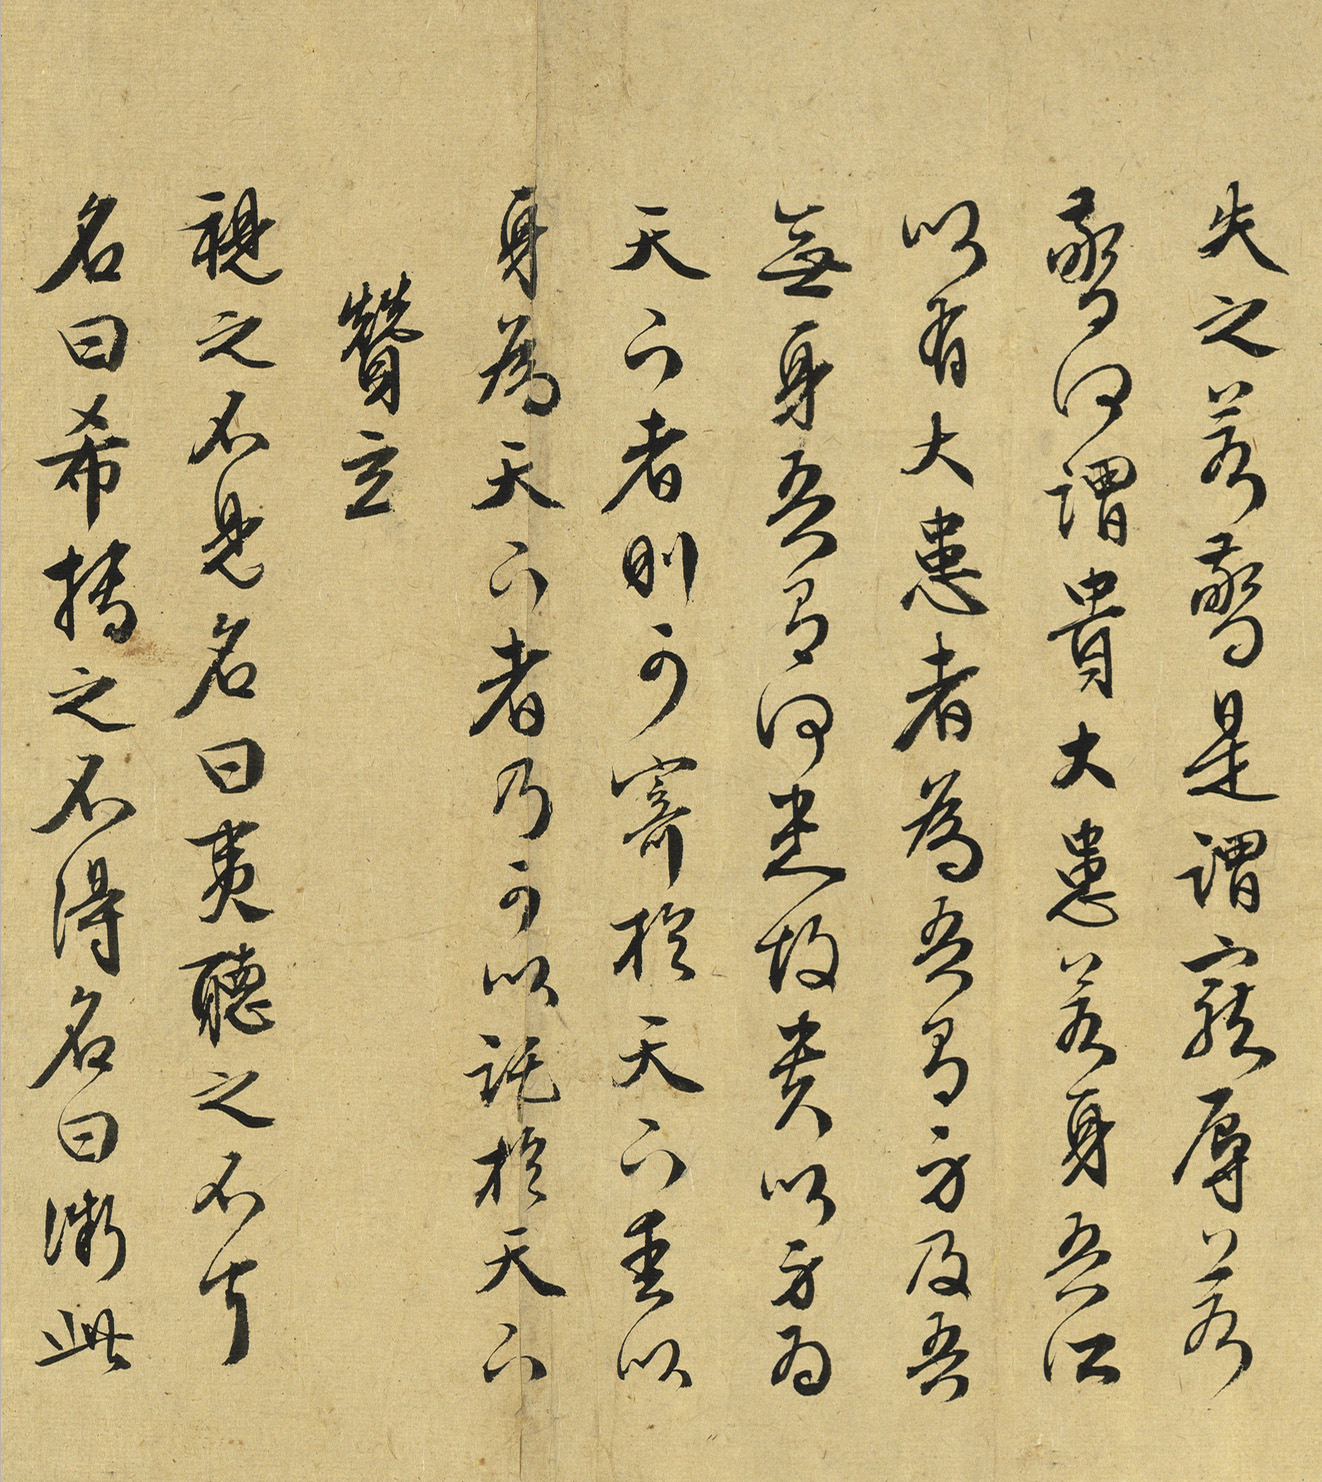 失之若驚是謂寵辱若
驚何謂貴大患若身吾所
以有大患者為吾有身及吾
無身吾有何患故貴以身為
天下者則可寄於天下愛以
身為天下者乃可以託於天下
贊玄
視之不見名曰夷聽之不聞
名曰希搏之不得名曰微此